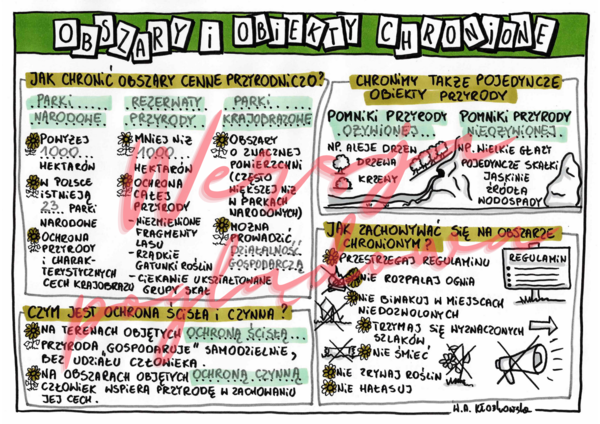 OBSZARY I OBIEKTY CHRONIONE
JAK CHRONIĆ OBSZARY CENNE PRZYRODNICZO?
PARKI
NARODOWE
POWYŻEJ
1000
HEKTARÓW
W POLSCE
ISTNIEJĄ
23 PARKI
NARODOWE
OCHRONA
PRZYRODY
I CHARAK-
TERYSTYCZNYCH
CECH KRAJOBRAZU
REZERWATY
PRZYRODY
MNIEJ NIŻ
1000
HEKTARÓW
OCHRONA
CAŁEJ
PRZYRODY
- NIEZMIENIONE
FRAGMENTY
LASU
- RZADKIE
GATUNKI ROŚLIN
- CIEKAWIE UKSZTAŁTOWANE
GRUPY SKAŁ
PARKI
KRAJOBRAZOWE
OBSZARY
O ZNACZNEJ
POWIERZCHNI
(CZĘSTO
WIĘKSZEJ NIŻ
W PARKACH
NARODOWYCH)
MOŻNA
PROWADZIĆ
DZIAŁALNOŚĆ
GOSPODARCZĄ
CZYM JEST OCHRONA ŚCISŁA I CZYNNA?
NA TERENACH OBJĘTYCH OCHRONĄ ŚCISŁĄ
PRZYRODA "GOSPODARUJE" SAMODZIELNIE,
BEZ UDZIAŁU CZŁOWIEKA.
NA OBSZARACH OBJĘTYCH OCHRONĄ CZYNNĄ
CZŁOWIEK WSPIERA PRZYRODĘ W ZACHOWANIU
JEJ CECH.
CHRONIMY TAKŻE POJEDYNCZE
OBIEKTY PRZYRODY
POMNIKI PRZYRODY
OŻYWIONEJ
NP. ALEJE DRZEW
DRZEWA
KRZEWY
POMNIKI PRZYRODY
NIEOŻYWIONEJ
NP. WIELKIE GŁAZY
POJEDYNCZE SKAŁKI
JASKINIE
ŹRÓDŁA
WODOSPADY
JAK ZACHOWYWAĆ SIĘ NA OBSZARZE
CHRONIONYM?
PRZESTRZEGAJ REGULAMINU
NIE ROZPALAJ OGNIA
NIE BIWAKUJ W MIEJSCACH
NIEDOZWOLONYCH
TRZYMAJ SIĘ WYZNACZONYCH
SZLAKÓW
NIE ŚMIEĆ
NIE ZRYWAJ ROŚLIN
NIE HAŁASUJ
REGULAMIN
Wersja
poglądowa